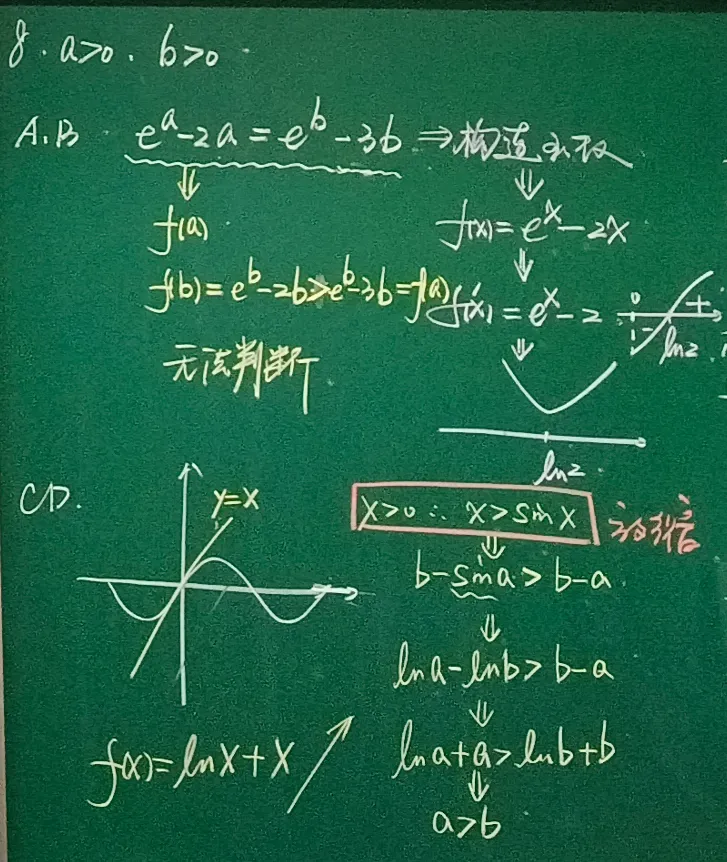 8. a>0. b>0
A.B e^a-2a=e^b-3b ⇒构造函数
⇓ ⇓
f(a) f(x)=e^x-2x
⇓
f(b)=e^b-2b>e^b-3b=f(a) f'(x)=e^x-2
0 - + ln2
无法判断 ⇓
ln2
CD. y=x
x>0 ∴ x>sinx
⇓
b-sina>b-a
⇓
lna-lnb>b-a
⇓
f(x)=lnx+x lna+a>lnb+b
⇓
a>b